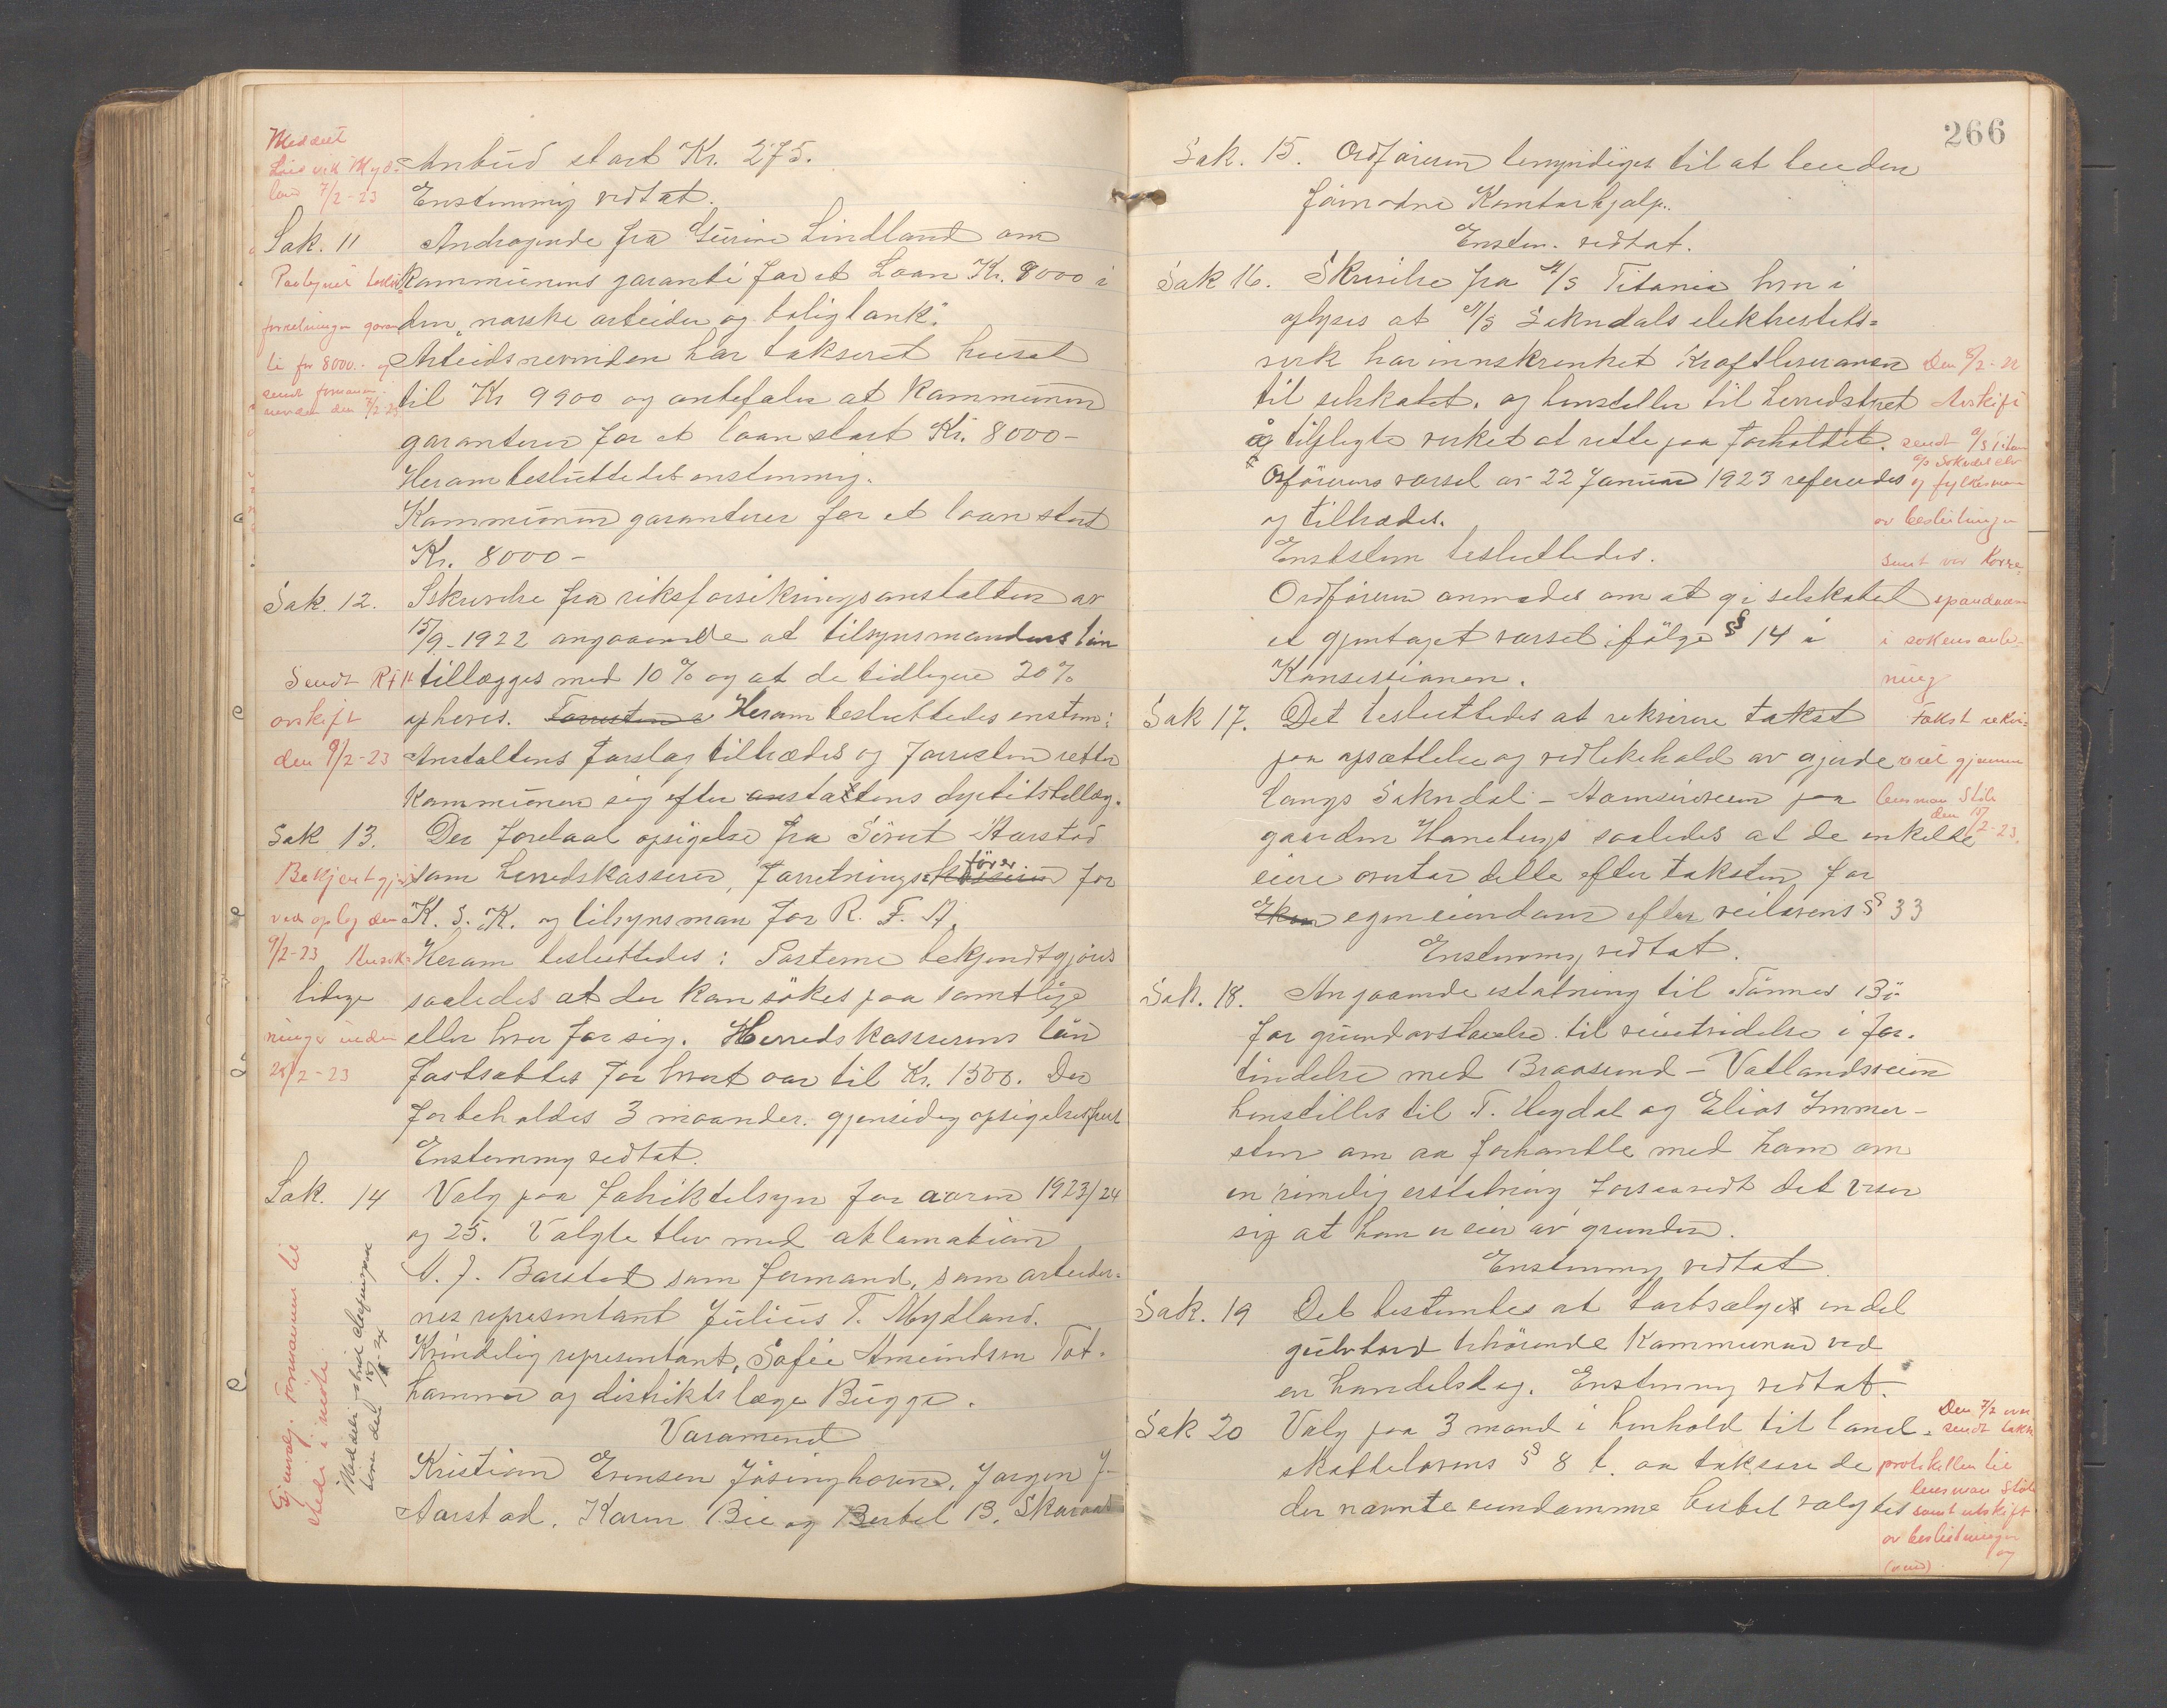 Anbud stort Kr. 275.
Enstemmig vedtat.
Sak. 11 Andragende fra Gurine Lindland om
kommunens garanti for et Laan Kr. 8000 i
den "norske arbeider og boligbank".
Arbeidsnevnden har taksert huset
til Kr 9900 og anbefaler at kommunen
garanterer for et laan stort Kr. 8000-
Herom besluttedes enstemmig.
Kommunen garanterer for et laan stort
Kr. 8000-
Sak. 12. Skrivelse fra riksforsikringsanstalten av
15/9-1922 angaaende at tilsynsmandens løn
tillægges med 10% og at de tidligere 20%
opheves. Herom besluttedes enstem:
Anstaltens forslag tiltrædes og forresten retter
kommunen sig efter anstaltens dyrtidstillæg.
Sak 13. Der forelaa opsigelse fra Sivert Aarstad
som herredskasserer, forretningsfører for
K. S. K. og tilsynsman for R. F. A.
Herom besluttedes: Posterne bekjendtgjøres
saaledes at der kan søkes paa samtlige
eller hver for sig. Herredskassererens løn
fastsættes for hvert aar til Kr. 1500. Der
forbeholdes 3 maaneder gjensidig opsigelsesfrist
Enstemmig vedtat.
Sak. 14 Valg paa fabriktilsyn for aaren 1923/24
og 25. Valgte blev med aklamation
N. J. Barstad som formand, som arbeider-
nes representant Julius T. Mydland.
Kvindelig representant, Sofie Amundsen Tot-
hammer og distriktslæge Bugge.
Varamend
Kristian Evensen Jøsinghavn, Jørgen J.
Aarstad. Karen Bie og Bertel B. Skaraas
Meddelt
Mydland 7/2-23
forretningen garan
ti for 8000.- og
sendt
den 7/2-23
Sendt RFA
avskift
den 9/2-23
Bekjentgjort
ved oplag den
9/2-23
ninger inden
25/2-23
Gjenvalg. Formannen til
stede i møte
Meddelt
266
Sak. 15. Ordføreren bemyndiges til at benden
førnødne Kontorhjelp.
Enstem. vedtat.
Sak 16. Skrivelse fra A/S Titania hvori
oplyses at A/S Sokndals elektrisitets-
verk har innskrenket kraftleveransen
til selskabet. og henstiller til herredstyret
og tilplegte verket at rette paa forholdet.
Ordførerens varsel av 22 Januar 1923 refereredes
og tiltrædes.
Enstem besluttedes.
Ordføreren anmodes om at gi selskabet
et gjentaget varsel ifølge § 14 i
Konsessionen.
Sak 17. Det besluttedes at rekvirere takst
paa opsættelse og vedlikehold av gjerde
langs Sokndal - Aamsveien paa
gaarden Hanebergs saaledes at de enkelte
eiere overtar dette efter taksten for
egen eiendom efter veilovens § 33
Enstemmig vedtat.
Sak. 18. Angaaende estatning til Tønnes Bö
for grundavstaaelse til veiutvidelse i for-
bindelse med Braasund - Vatlandsveien
henstilles til T. Hegdal og Elias Immer-
sten om aa forhandle med ham om
en rimelig erstatning forsaavidt det viser
sig at han er eier av grunden.
Enstemmig vedtat
Sak. 19 Det bestemtes at bortsælges endel
gulvbord tilhørende kommunen ved
en handelsdag. Enstemmig vedtat.
Sak 20 Valg paa 3 mand i henhold til land-
skattelovens § 8 b. aa taksere de
der nævnte eiendomme hertil valgtes
Den 8/2-23
Avskift
sendt A/S Titan
A/S Sokndal elv
og fylkesman
av beslutningen
samt vor korre-
spondanse
i sakens anle-
ning
Takst rekvi-
reret gjennem
lensman Støle
den 15/2-23.
Den 7/2 over
sendt takst
protokollen til
lensman Støle
samt utskift
av beslutningen
og
(vend)